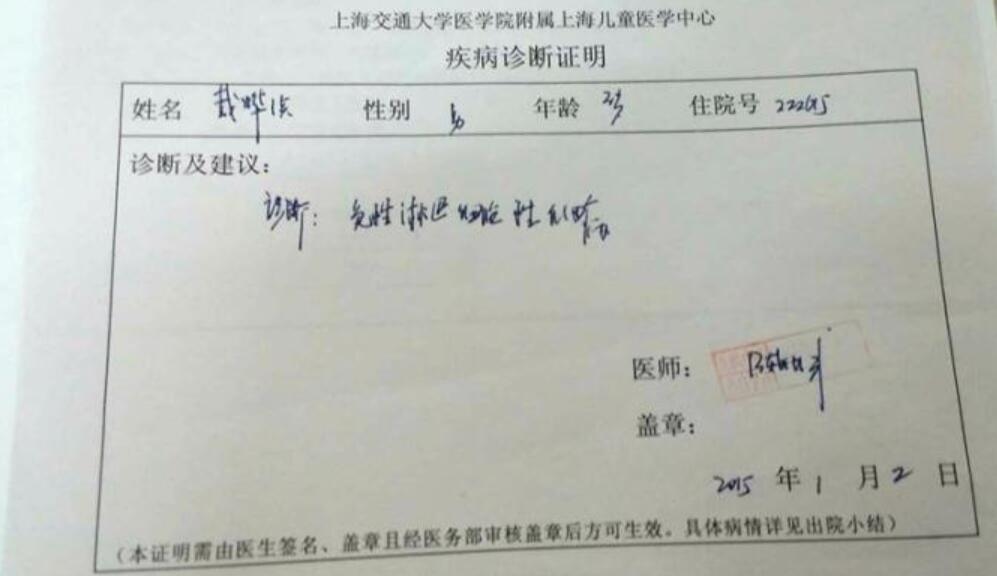 上海交通大学医学院附属上海儿童医学中心
疾病诊断证明
姓名 戴 性别 男 年龄 2岁 住院号
诊断及建议：
诊断：急性淋巴细胞性白血病
医师：
盖章：
2015 年 1 月 2 日
（本证明需由医生签名、盖章且经医务部审核盖章后方可生效。具体病情详见出院小结）